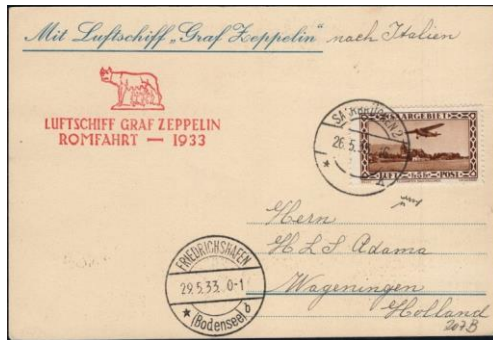 Mit Luftschiff „Graf Zeppelin" nach Italien
LUFTSCHIFF GRAF ZEPPELIN
ROMFAHRT — 1933
SAARBRÜCKEN 2
26.5.
SAARGEBIET
LUFT POST
Herrn
H L S Adama
Wageningen
Holland
FRIEDRICHSHAFEN
29.5.33. 0-1
* (Bodensee) b
207B